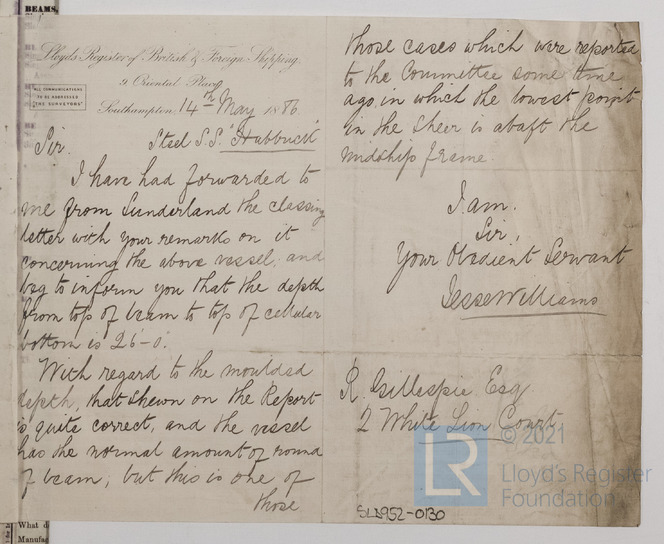 BEAMS.
Lloyd's Register of British & Foreign Shipping.
2. Oriental Place
ALL COMMUNICATIONS
TO BE ADDRESSED
"THE SURVEYORS"
Southampton, 14th May 1886
Sir. Steel S.S. "Hubbuck"
I have had forwarded to
me from Sunderland the classing
letter with your remarks on it
concerning the above vessel, and
beg to inform you that the depth
from top of beam to top of cellular
bottom is 26'-0".
With regard to the moulded
depth, that shewn on the Report
is quite correct, and the vessel
has the normal amount of round
of beam, but this is one of
those
those cases which were reported
to the Committee some time
ago, in which the lowest point
in the sheer is abaft the
midship frame.
I am.
Sir,
Your Obedient Servant
Jesse Williams
R. Gillespie Esq
2 White Lion Court
LR © 2021
Lloyd's Register
Foundation
SLD952-0130
What d
Manufac